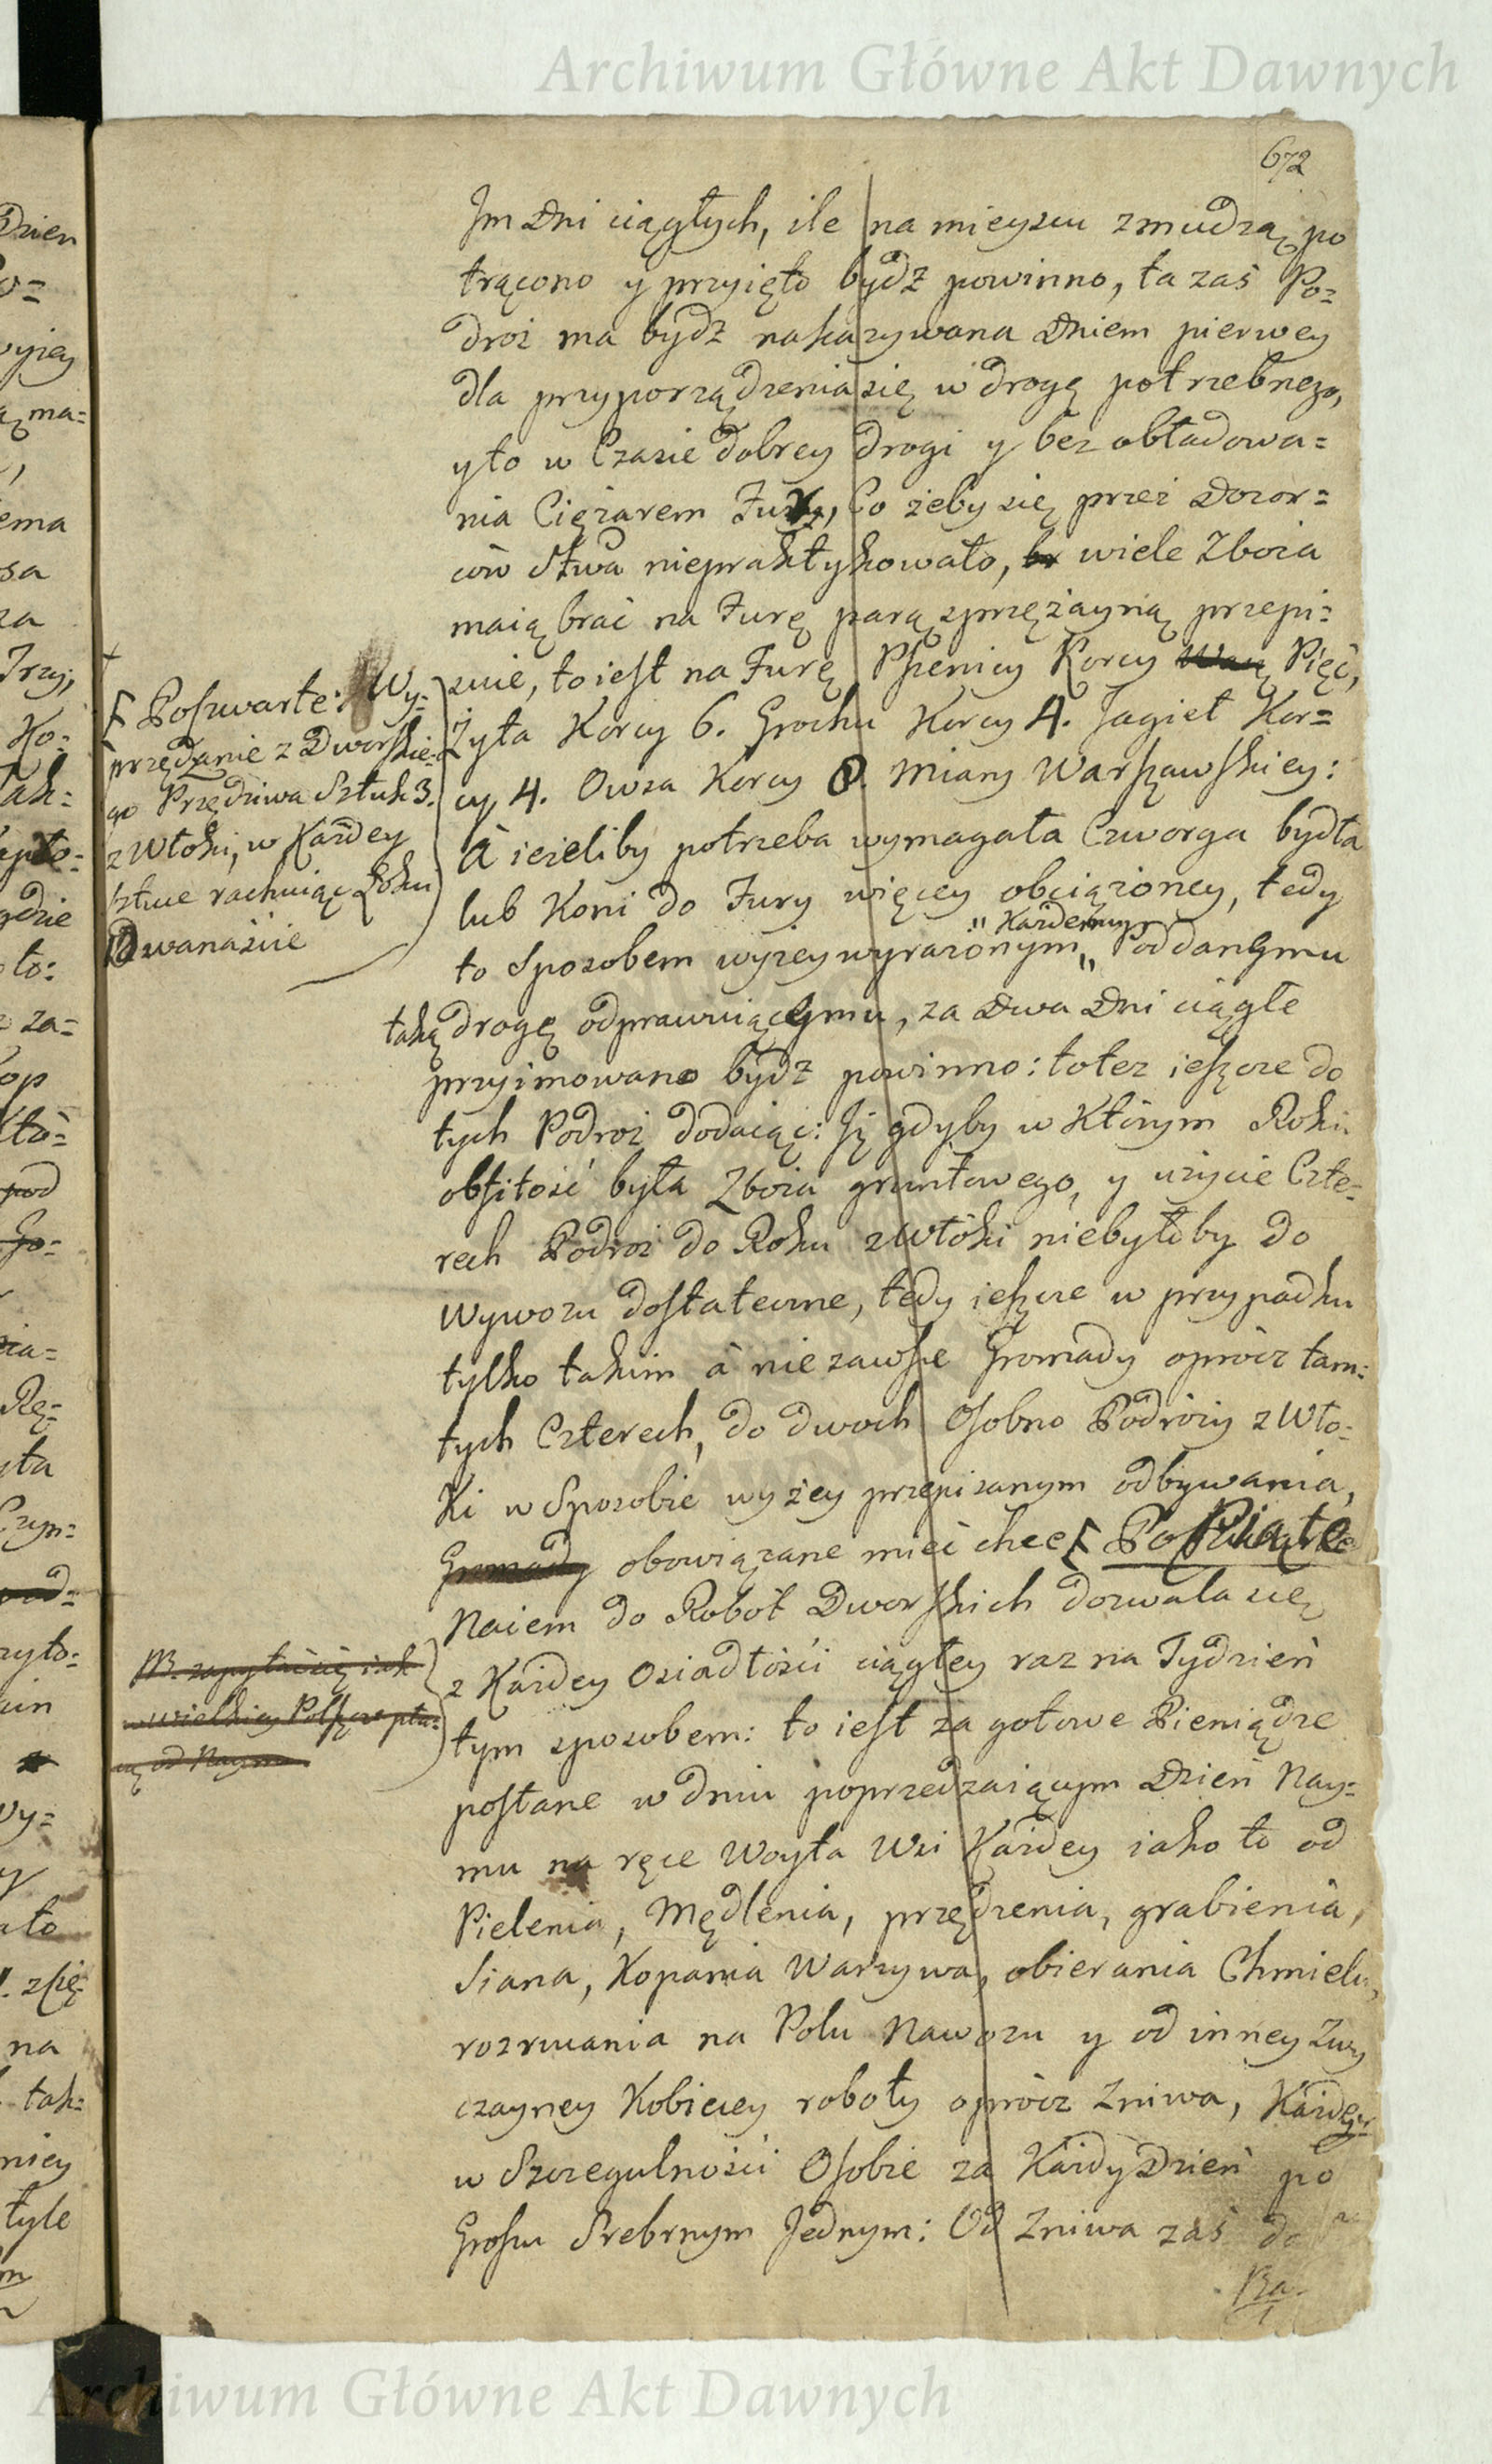 Archiwum Główne Akt Dawnych
672
Im Dni ciągłych, ile na mieyscu zmudzą po
trącono y przyięto bydz powinno, ta zaś Po=
droz ma bydz nakazywana Dniem pierwey
dla przyporządzenia się w drogę potrzebnego,
y to w Czasie dobrey drogi y bez obładowa=
nia Ciężarem Fury, Co żeby się przez Dozor=
ców Stwa niepraktykowało, wiele Zboża
maią brać na Furę parą sprzężayną przepi=
suie, to iest na Furę Pszenicy Korcy Pięć,
Żyta Korcy 6. Grochu Korcy 4. Jagieł Kor=
cy 4. Owsa Korcy 8. Miary Warszawskiey:
À ieżeliby potrzeba wymagała Czworga bydła
lub Koni do Fury więcey obciążoney, tedy
to Sposobem wyżey wyrażonym „Każdemu„ Poddanemu
taką drogę odprawuiącemu, za Dwa Dni ciągłe
przyimowano bydz powinno: toteż ieszcze do
tych Podroż dodaiąc: Iż gdyby w Którym Roku
obfitość była Zboża gruntowego, y użycie Czte=
rech Podroż do Roku z Włóki niebyłoby do
Wywozu dostateczne, tedy ieszcze w przypadku
tylko takim à nie zawsze Gromady oprócz tam=
tych Czterech, do dwoch Osobno Podroży z Wło=
Ki w Sposobie wyżey przepisanym odbywania,
Gromady obowiązane mieć chce Po Piąte
Naiem do Robót Dworskich dozwala się
z Każdey Osiadłości ciągłey raz na Tydzień
tym sposobem: to iest za gotowe Pieniądze
posłane w dniu poprzedzaiącym Dzień Nay=
mu na ręce Woyta Wsi Każdey iako to od
Pielenia, Mędlenia, przędzenia, grabienia,
Siana, Kopania Warzywa, obierania Chmielu,
rozrucania na Polu Nawozu y od inney Zwy
czayney Kobiecey roboty oprócz Zniwa, Każdey
w Szczegulności Osobie za Każdy Dzień po
Groszu Srebrnym Jednym: Od Zniwa zaś do
Ra-
Po czwarte: Wy=
przędzanie z Dworskie=
go Przędziwa Sztuk 3.
z Włoki, w Każdey
sztuce rachuiąc Łokci
Dwanaście
NB. zapytać się iak
w wielkiey Polszcze pła=
cą od Naymu
Archiwum Główne Akt Dawnych